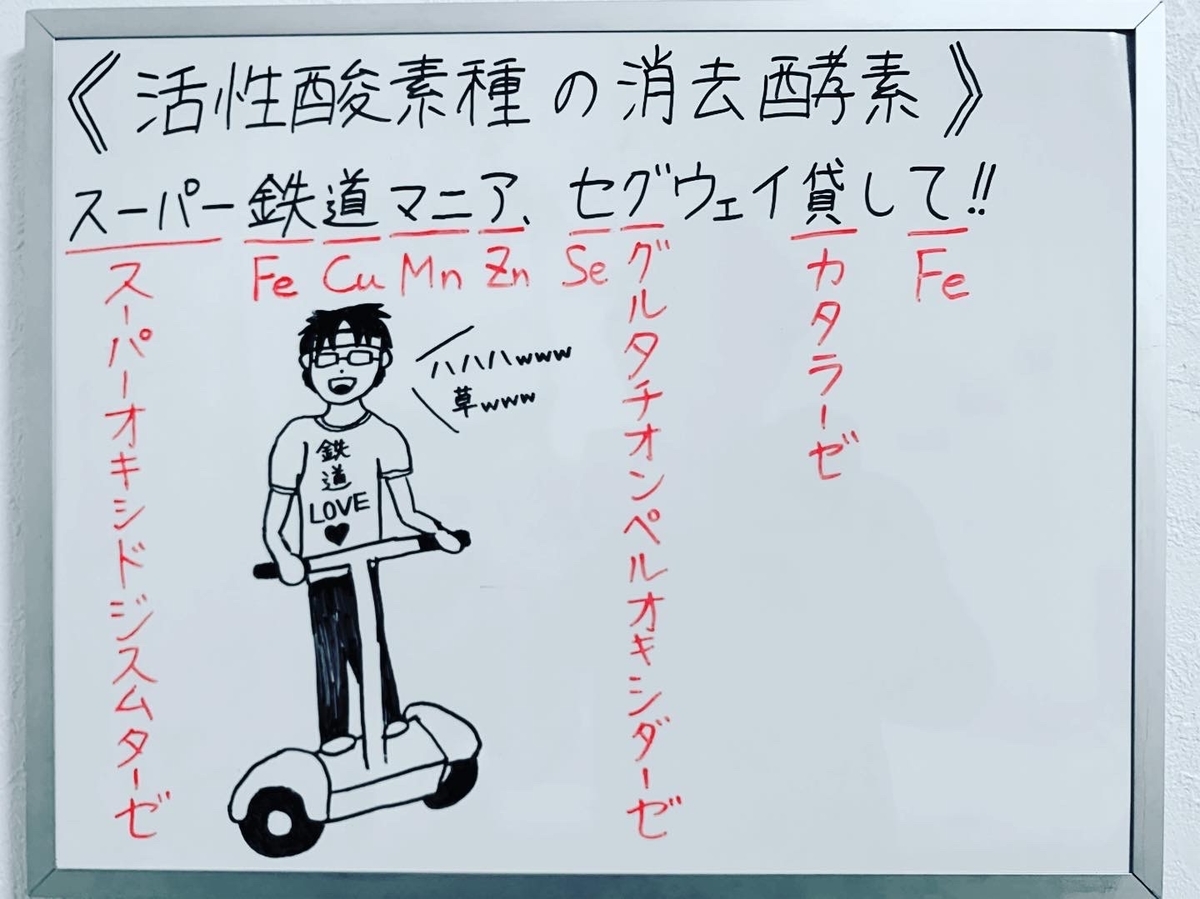 《活性酸素種の消去酵素》
スーパー鉄道マニア、セグウェイ貸して!!
スーパーオキシドジスムターゼ
Fe Cu Mn Zn Se
グルタチオンペルオキシダーゼ
カタラーゼ
Fe
ハハハwww
草www
鉄
道
LOVE